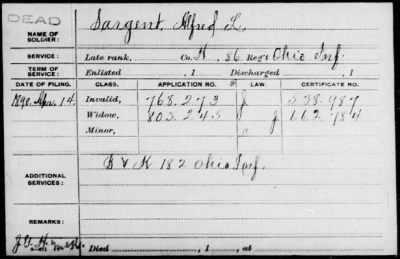 DEAD
NAME OF SOLDIER: Sargent, Alfred L.
SERVICE: Late rank, Co. H, 86 Reg't Ohio Inf.
TERM OF SERVICE: Enlisted , 1 Discharged , 1
DATE OF FILING. CLASS. APPLICATION NO. LAW. CERTIFICATE NO.
1890, Apr. 14. Invalid, 768.273 J 538.987
Widow, 803.245 J 112.784
Minor,
ADDITIONAL SERVICES: B & K 182 Ohio Inf.
REMARKS:
Died , 1 , at